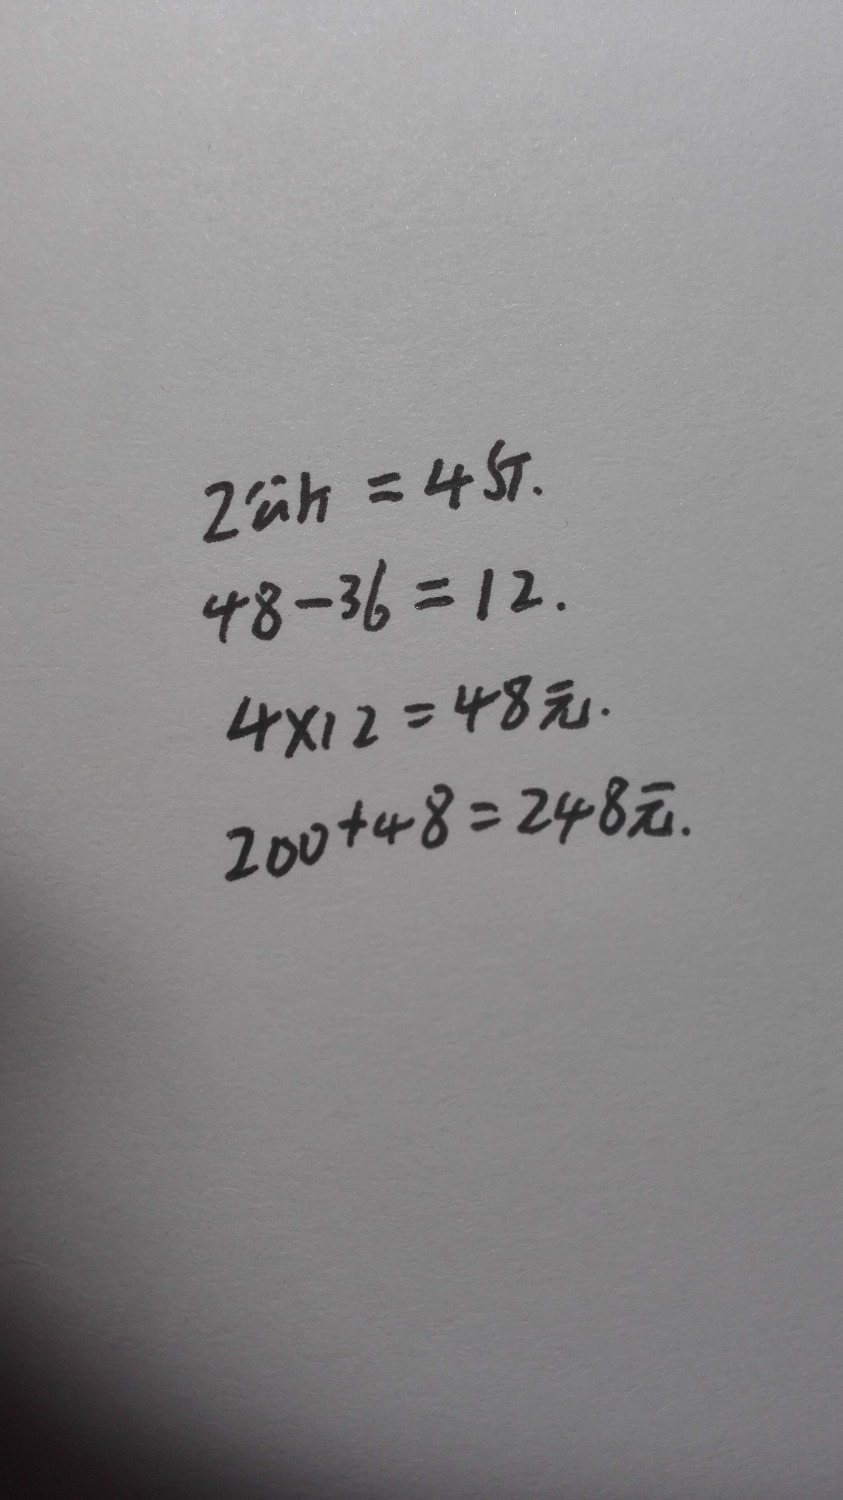 2公斤=4斤.
48-36=12.
4×12=48元.
200+48=248元.